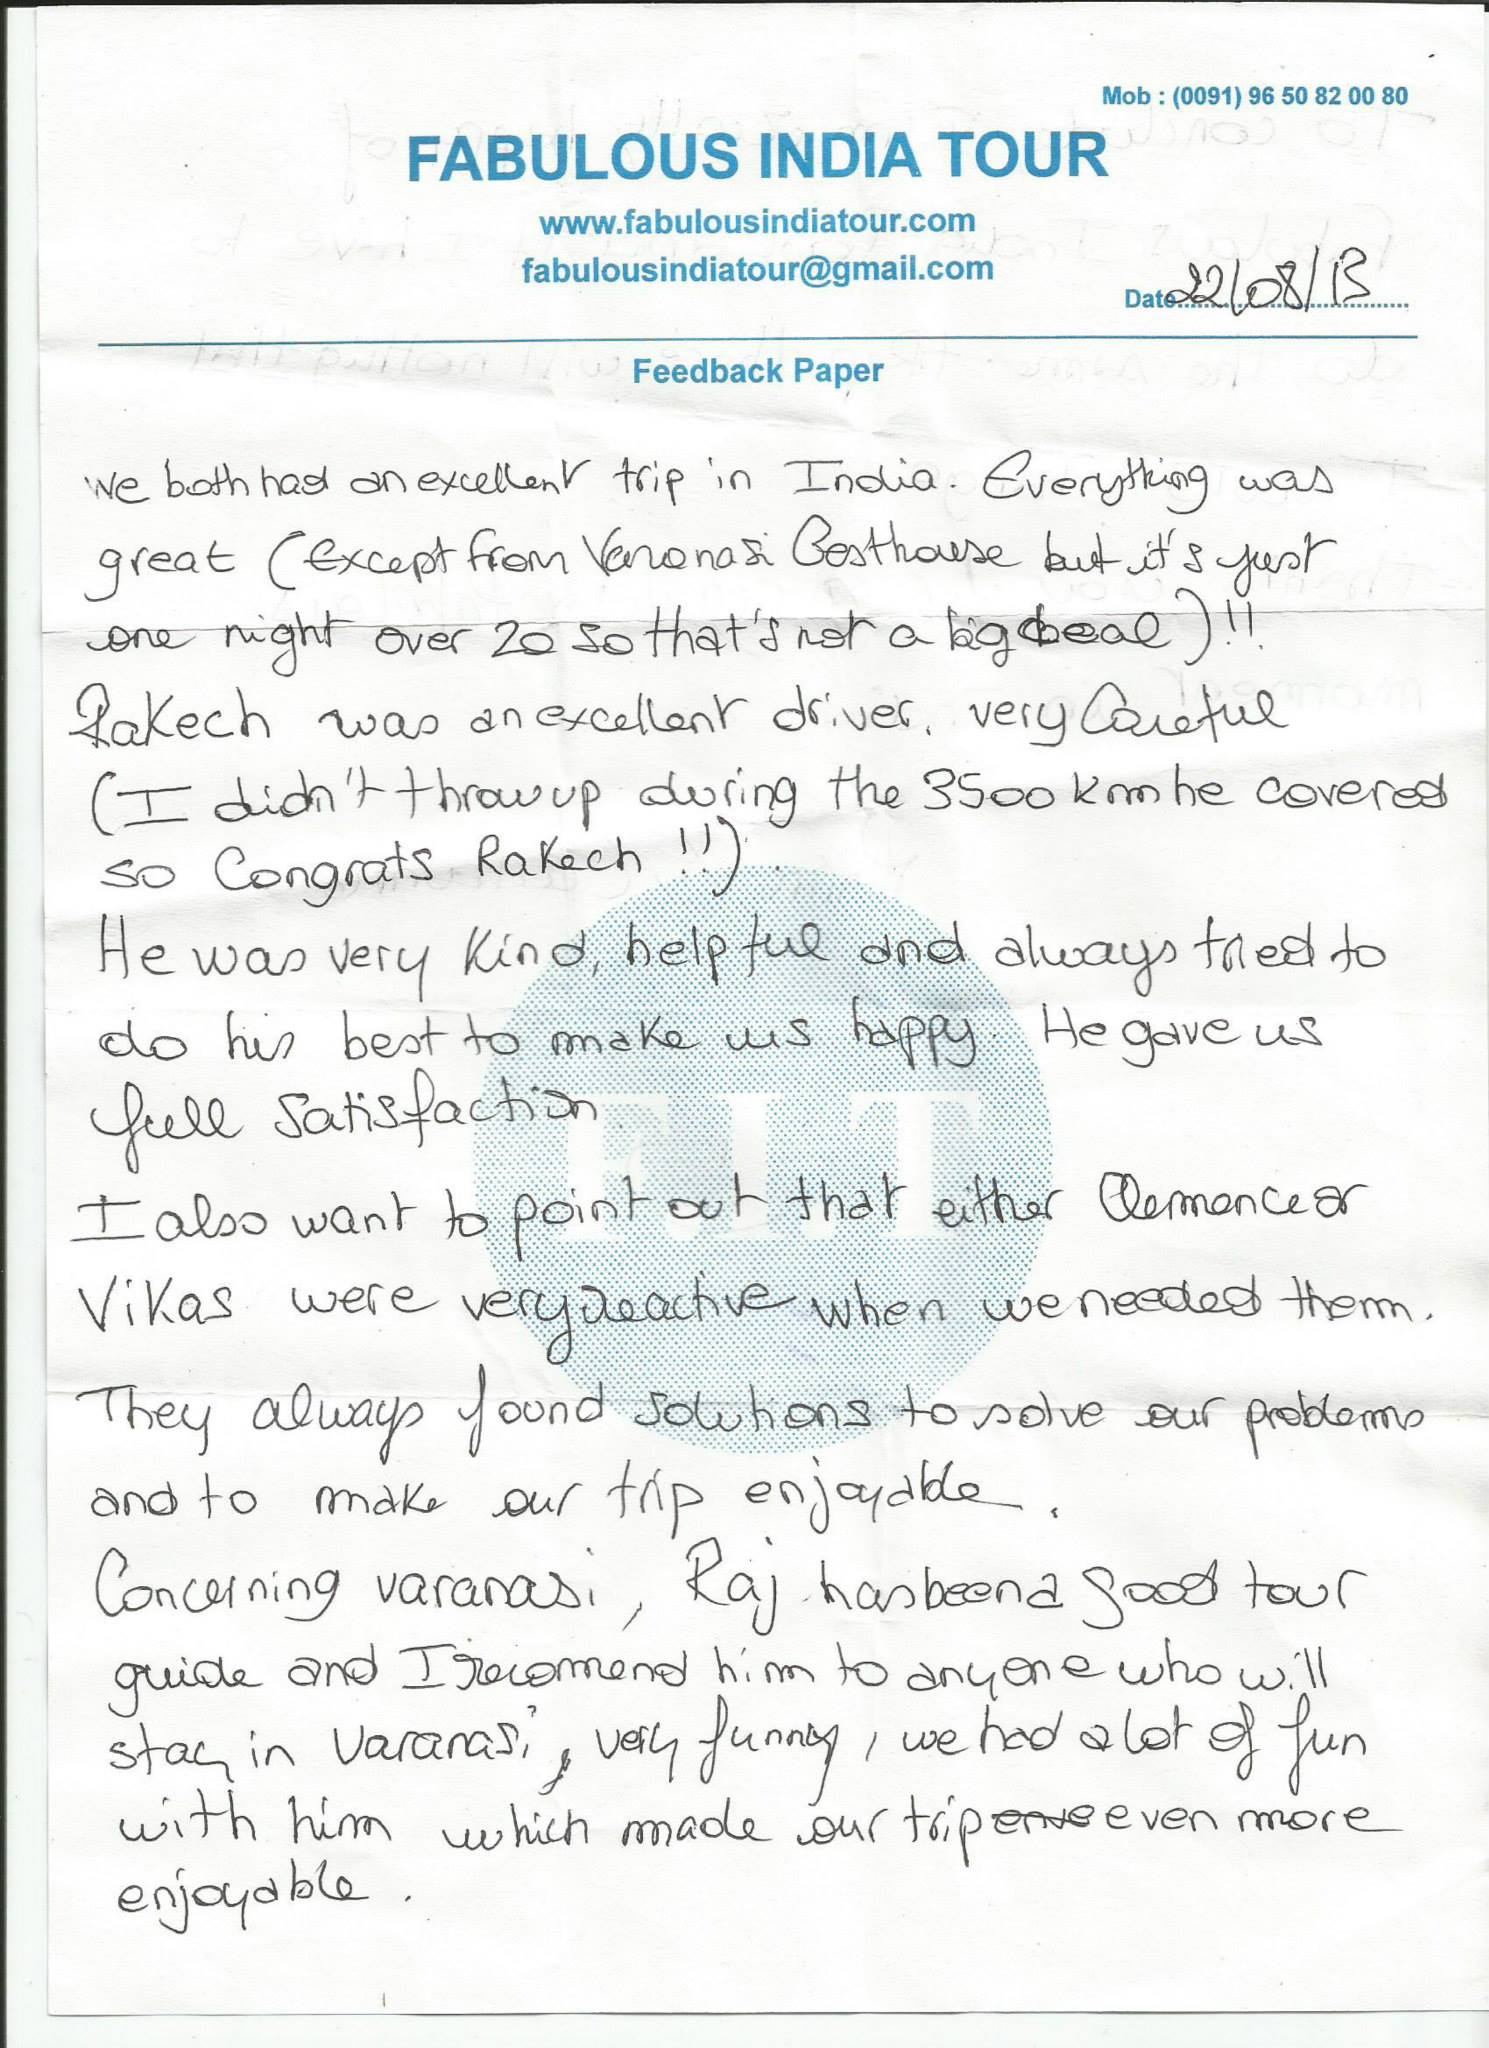 Mob : (0091) 96 50 82 00 80
FABULOUS INDIA TOUR
www.fabulousindiatour.com
fabulousindiatour@gmail.com
Date 22/08/13
Feedback Paper
We both had an excellent trip in India. Everything was
great (except from Varanasi Gosthouse but it's just
one night over 20 so that's not a big deal)!!
Rakech was an excellent driver, very Careful
(I didn't throw up during the 3500 km he covered
so Congrats Rakech !!).
He was very kind, helpful and always tried to
do his best to make us happy. He gave us
full satisfaction.
FIT
I also want to point out that either Clemence or
Vikas were very reactive when we needed them.
They always found solutions to solve our problems
and to make our trip enjoyable.
Concerning varanasi, Raj has been a good tour
guide and I recommend him to anyone who will
stay in Varanasi, very funny, we had a lot of fun
with him which made our trip even more
enjoyable.